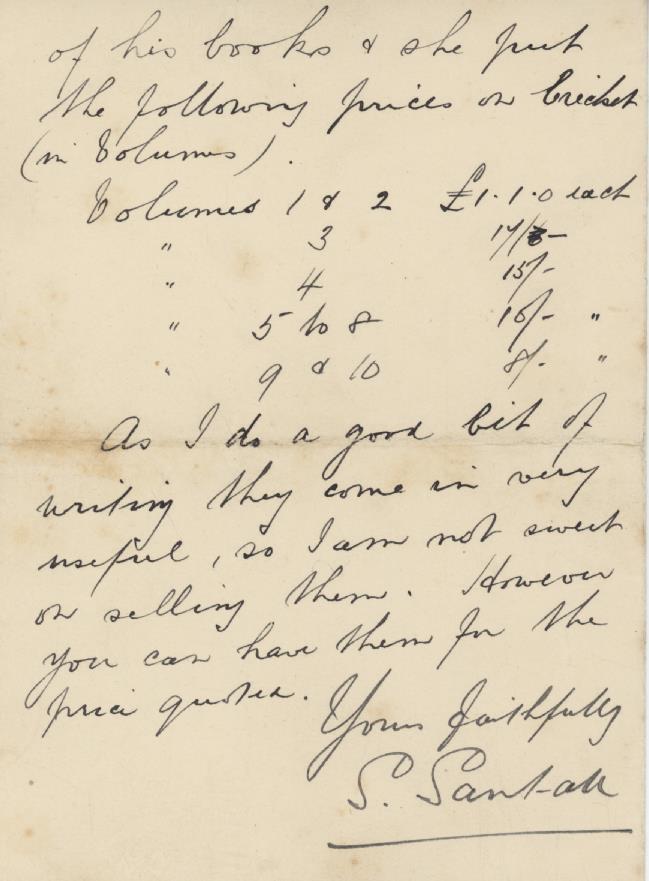 of his books & she put
the following prices on Cricket
(in Volumes).
Volumes 1 & 2 £1.1.0 each
" 3
" 4 15/-
" 5 to 8 10/- "
" 9 & 10 8/- "
As I do a good bit of
writing they come in very
useful, so I am not sweet
on selling them. However
you can have them for the
price quoted.
Yours faithfully
S. Santall